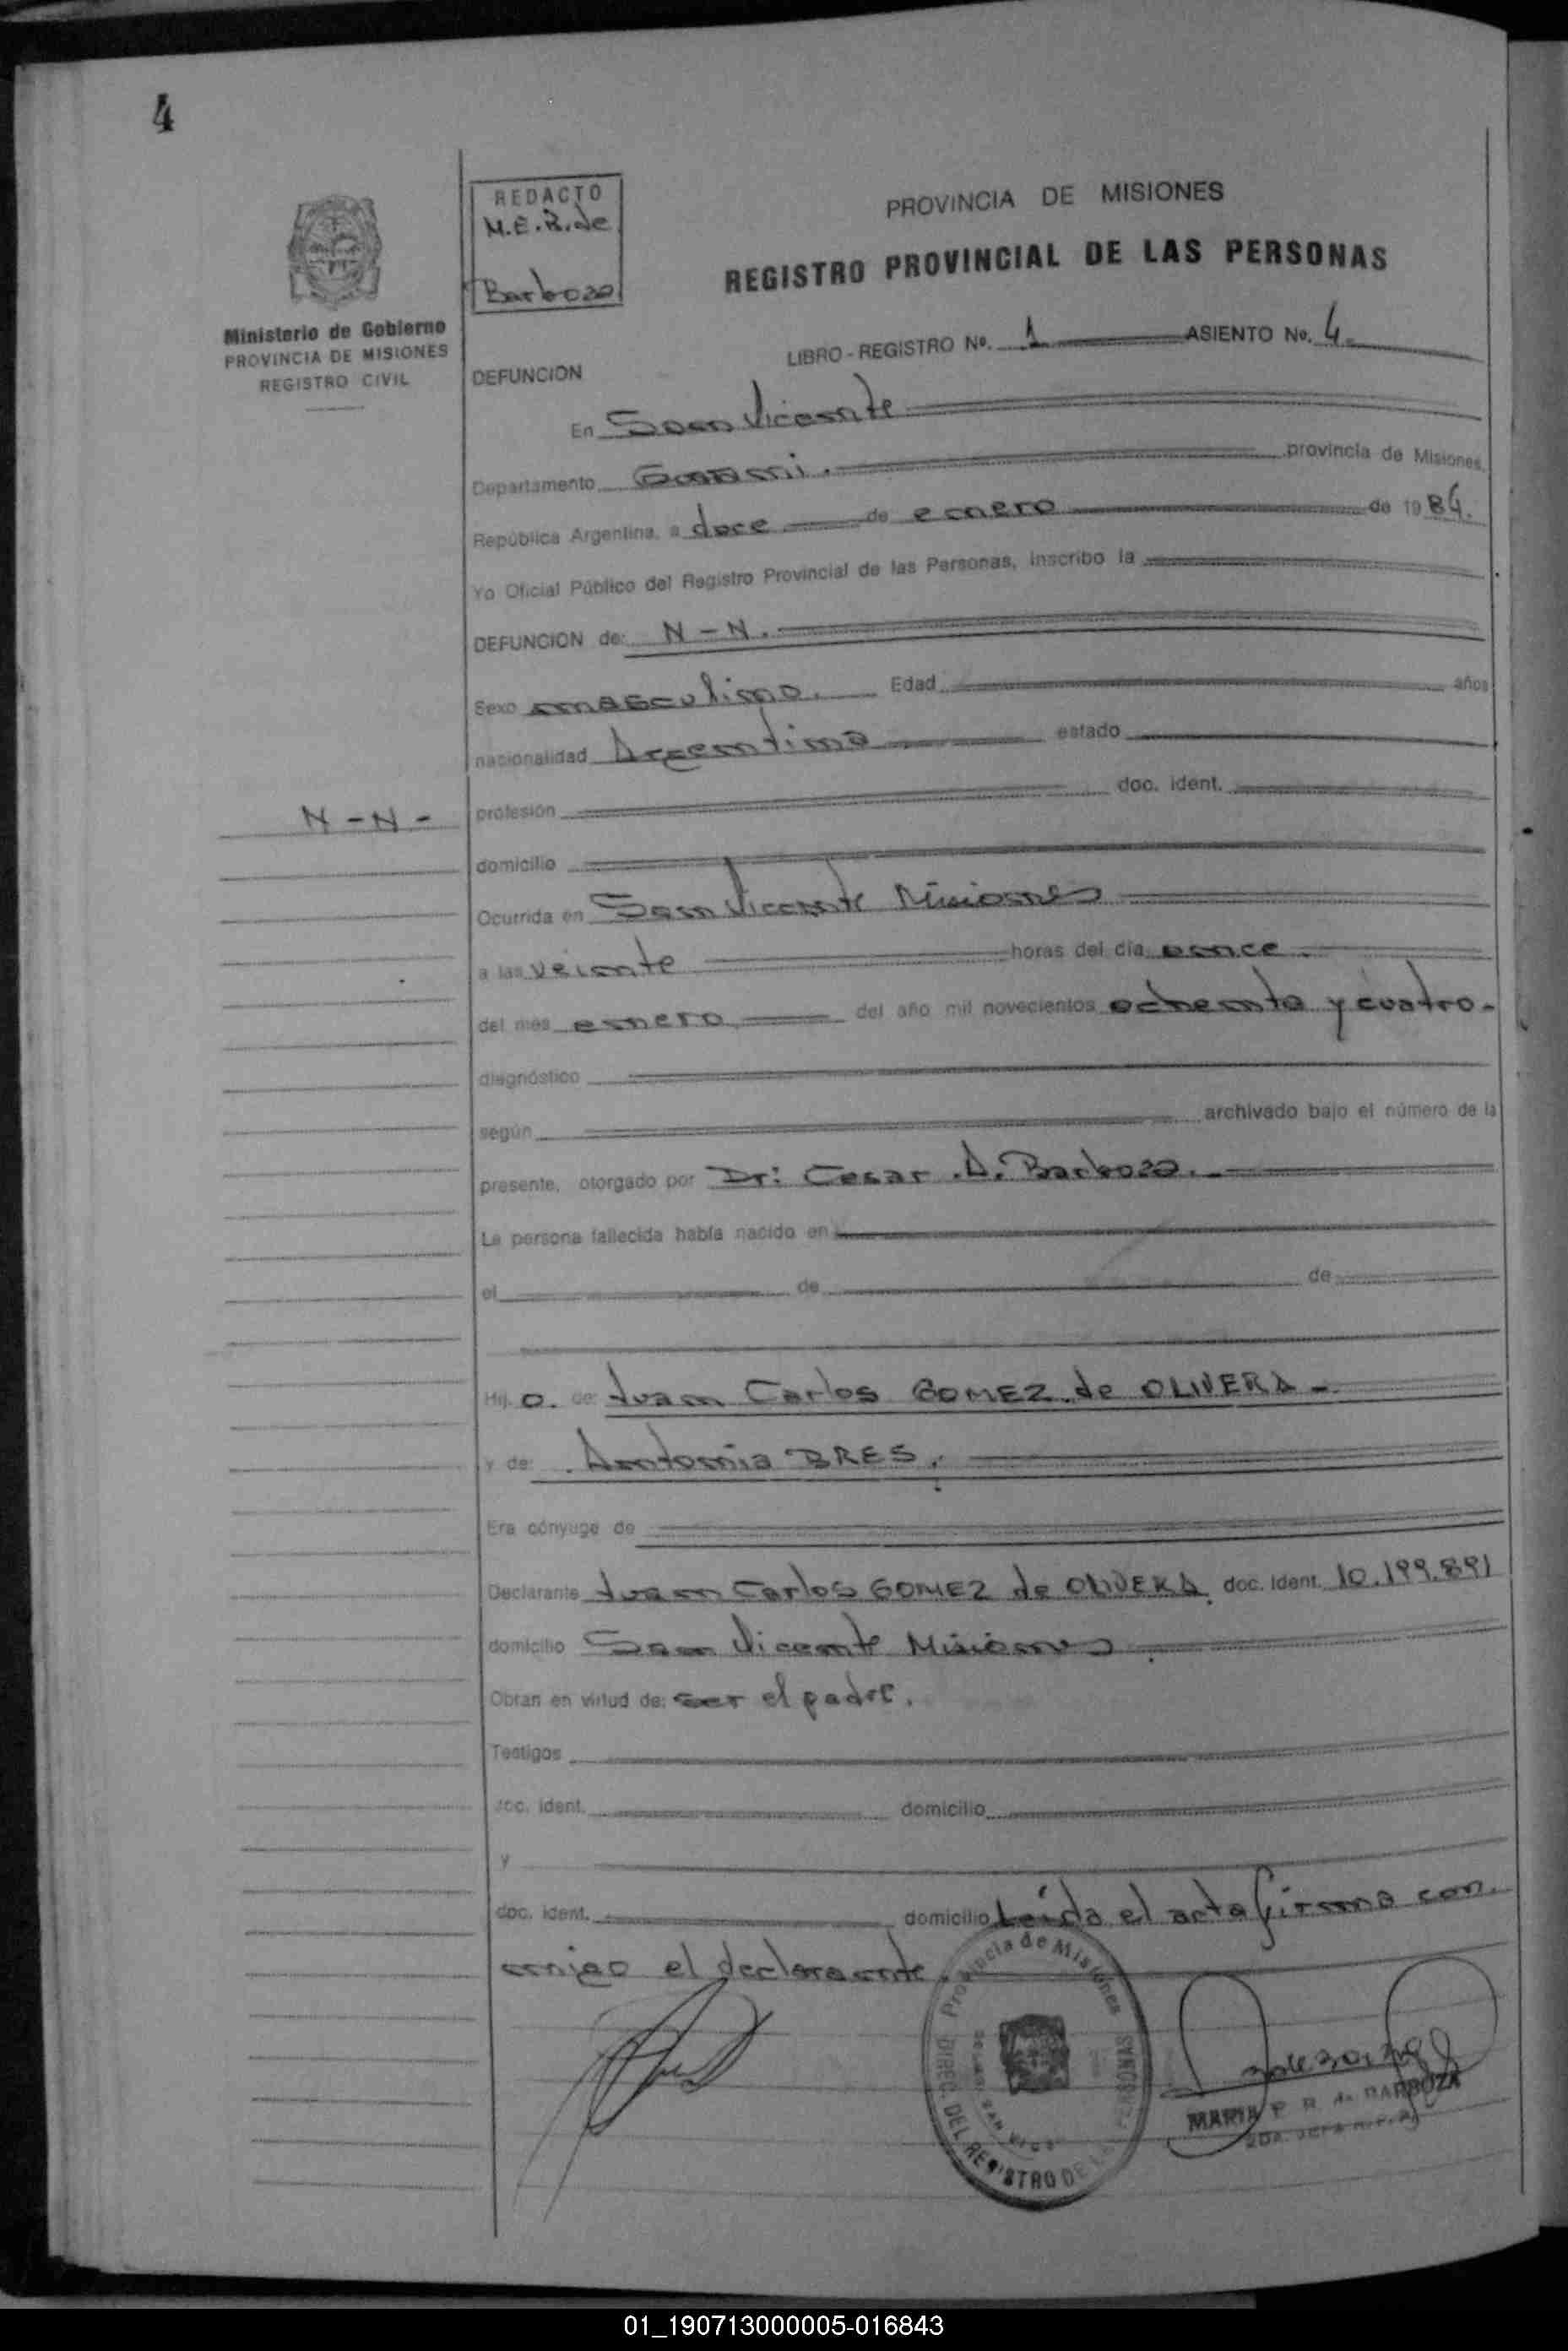 4
REDACTO
M.E.R. de
Barboza
PROVINCIA DE MISIONES
REGISTRO PROVINCIAL DE LAS PERSONAS
Ministerio de Gobierno
PROVINCIA DE MISIONES
REGISTRO CIVIL
LIBRO - REGISTRO No. 1 ASIENTO No. 4.
DEFUNCION
En San Vicente
Departamento Guarani. provincia de Misiones,
República Argentina, a doce de enero de 1984.
Yo Oficial Público del Registro Provincial de las Personas, inscribo la
DEFUNCION de: N - N.
Sexo masculino. Edad años
nacionalidad Argentina estado
N - N -
profesión doc. ident.
domicilio
Ocurrida en San Vicente Misiones
a las veinte horas del día once.
del mes enero, del año mil novecientos ochenta y cuatro -
diagnóstico
según archivado bajo el número de la
presente, otorgado por Dr: Cesar A. Barboza.
La persona fallecida había nacido en
el de de
Hij o. de: Juan Carlos GOMEZ de OLIVERA -
y de: Antonia BRES.
Era cónyuge de
Declarante Juan Carlos GOMEZ de OLIVERA doc. ident. 10.199.891
domicilio San Vicente Misiones.
Obran en virtud de: ser el padre.
Testigos
doc. ident. domicilio
y
doc. ident. domicilio Leída el acta firma con
migo el declarante.
Provincia de Misiones
DIREC. DEL REGISTRO DE LAS PERSONAS
MARIA E. R. de BARBOZA
01_190713000005-016843